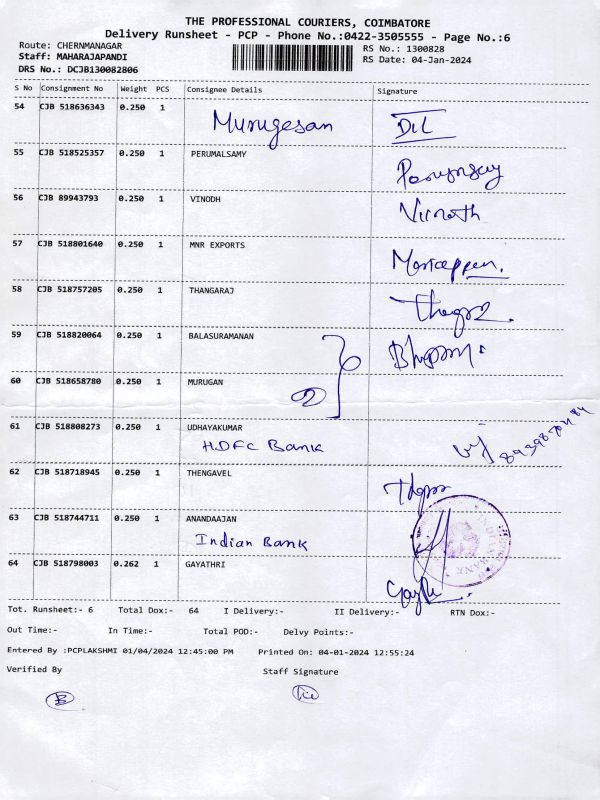 THE PROFESSIONAL COURIERS, COIMBATORE
Delivery Runsheet - PCP - Phone No.:0422-3505555 - Page No.:6
Route: CHERNMANAGAR
RS No.: 1300828
Staff: MAHARAJAPANDI
RS Date: 04-Jan-2024
DRS No.: DCJB130082806
S No Consignment No Weight PCS Consignee Details Signature
54 CJB 518636343 0.250 1 Murugesan
55 CJB 518525357 0.250 1 PERUMALSAMY
56 CJB 89943793 0.250 1 VINODH Vinoth
57 CJB 518801640 0.250 1 MNR EXPORTS Mariappan.
58 CJB 518757205 0.250 1 THANGARAJ
59 CJB 518820064 0.250 1 BALASURAMANAN
60 CJB 518658780 0.250 1 MURUGAN
61 CJB 518808273 0.250 1 UDHAYAKUMAR
HDFC Bank
62 CJB 518718945 0.250 1 THENGAVEL
63 CJB 518744711 0.250 1 ANANDAAJAN
Indian Bank
64 CJB 518798003 0.262 1 GAYATHRI
Tot. Runsheet:- 6 Total Dox:- 64 I Delivery:- II Delivery:- RTN Dox:-
Out Time:- In Time:- Total POD:- Delvy Points:-
Entered By :PCPLAKSHMI 01/04/2024 12:45:00 PM Printed On: 04-01-2024 12:55:24
Verified By Staff Signature